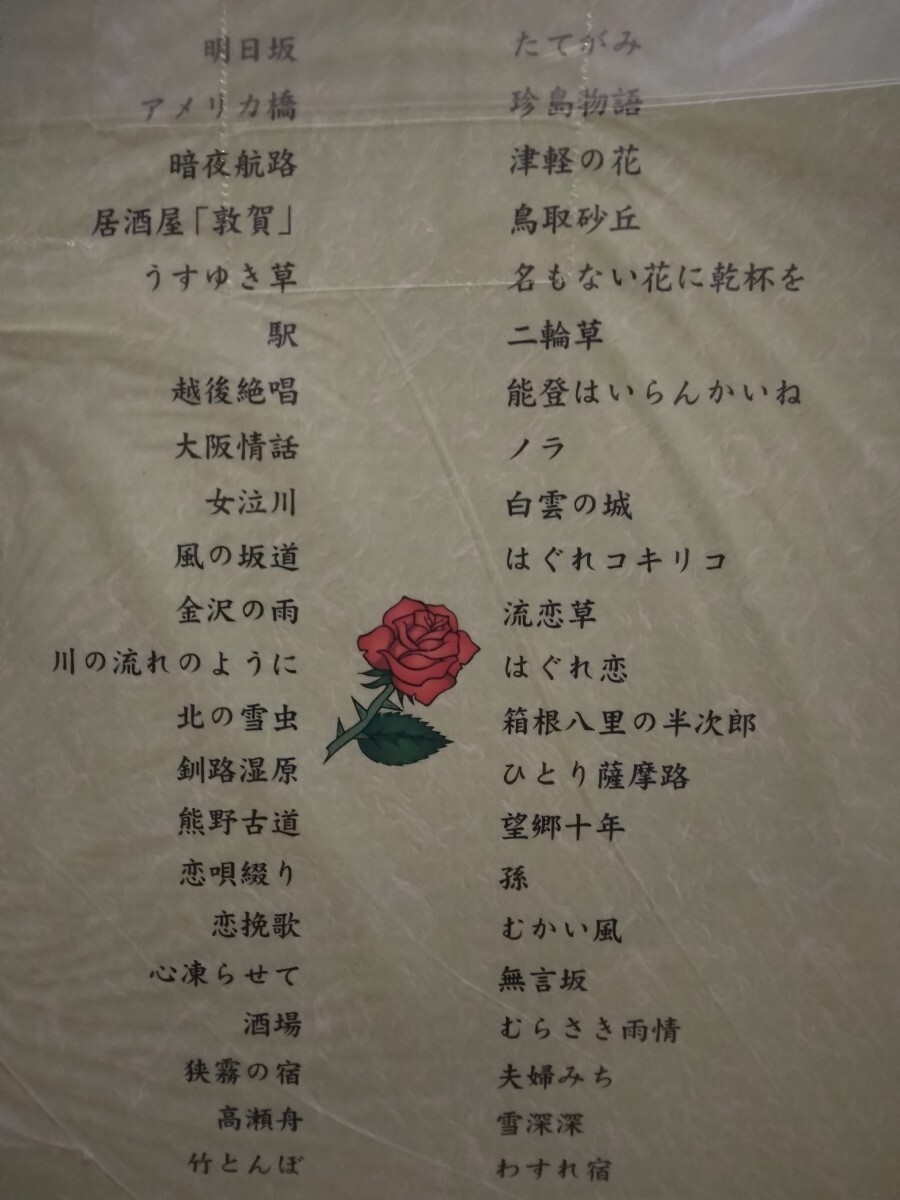 明日坂
アメリカ橋
暗夜航路
居酒屋「敦賀」
うすゆき草
駅
越後絶唱
大阪情話
女泣川
風の坂道
金沢の雨
川の流れのように
北の雪虫
釧路湿原
熊野古道
恋唄綴り
恋挽歌
心凍らせて
酒場
狭霧の宿
高瀬舟
竹とんぼ
たてがみ
珍島物語
津軽の花
鳥取砂丘
名もない花に乾杯を
二輪草
能登はいらんかいね
ノラ
白雲の城
はぐれコキリコ
流恋草
はぐれ恋
箱根八里の半次郎
ひとり薩摩路
望郷十年
孫
むかい風
無言坂
むらさき雨情
夫婦みち
雪深深
わすれ宿